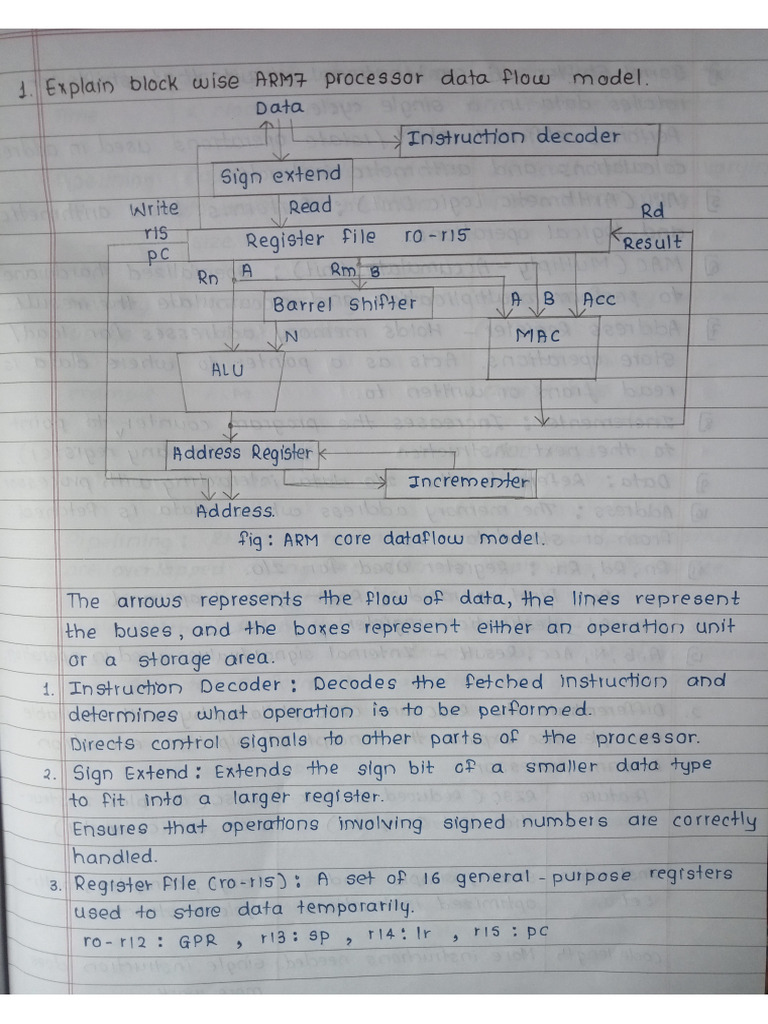 1. Explain block wise ARM7 processor data flow model.
Data
Instruction decoder
Sign extend
Write
Read
Rd
r15
Register file r0-r15
Result
pc
Rn
A
Rm
B
Barrel Shifter
A B Acc
N
MAC
ALU
Address Register
Incrementer
Address.
fig: ARM core dataflow model.
The arrows represents the flow of data, the lines represent
the buses, and the boxes represent either an operation unit
or a storage area.
1. Instruction Decoder: Decodes the fetched instruction and
determines what operation is to be performed.
Directs control signals to other parts of the processor.
2. Sign Extend: Extends the sign bit of a smaller data type
to fit into a larger register.
Ensures that operations involving signed numbers are correctly
handled.
3. Register File (r0-r15): A set of 16 general-purpose registers
used to store data temporarily.
r0-r12: GPR, r13: sp, r14: lr, r15: pc